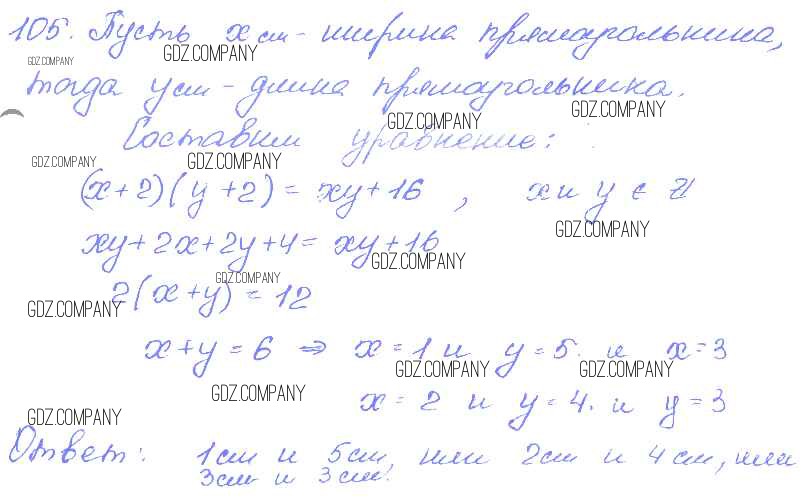 105. Пусть x см - ширина прямоугольника,
тогда y см - длина прямоугольника.
Составим уравнение:
(x+2)(y+2) = xy+16, x и y ∈ Z
xy+2x+2y+4 = xy+16
2(x+y) = 12
x+y=6 ⇒ x=1 и y=5. и x=3
x=2 и y=4. и y=3
Ответ: 1см и 5см, или 2см и 4см, или
3см и 3см.
GDZ.COMPANY
GDZ.COMPANY
GDZ.COMPANY
GDZ.COMPANY
GDZ.COMPANY
GDZ.COMPANY
GDZ.COMPANY
GDZ.COMPANY
GDZ.COMPANY
GDZ.COMPANY
GDZ.COMPANY
GDZ.COMPANY
GDZ.COMPANY
GDZ.COMPANY